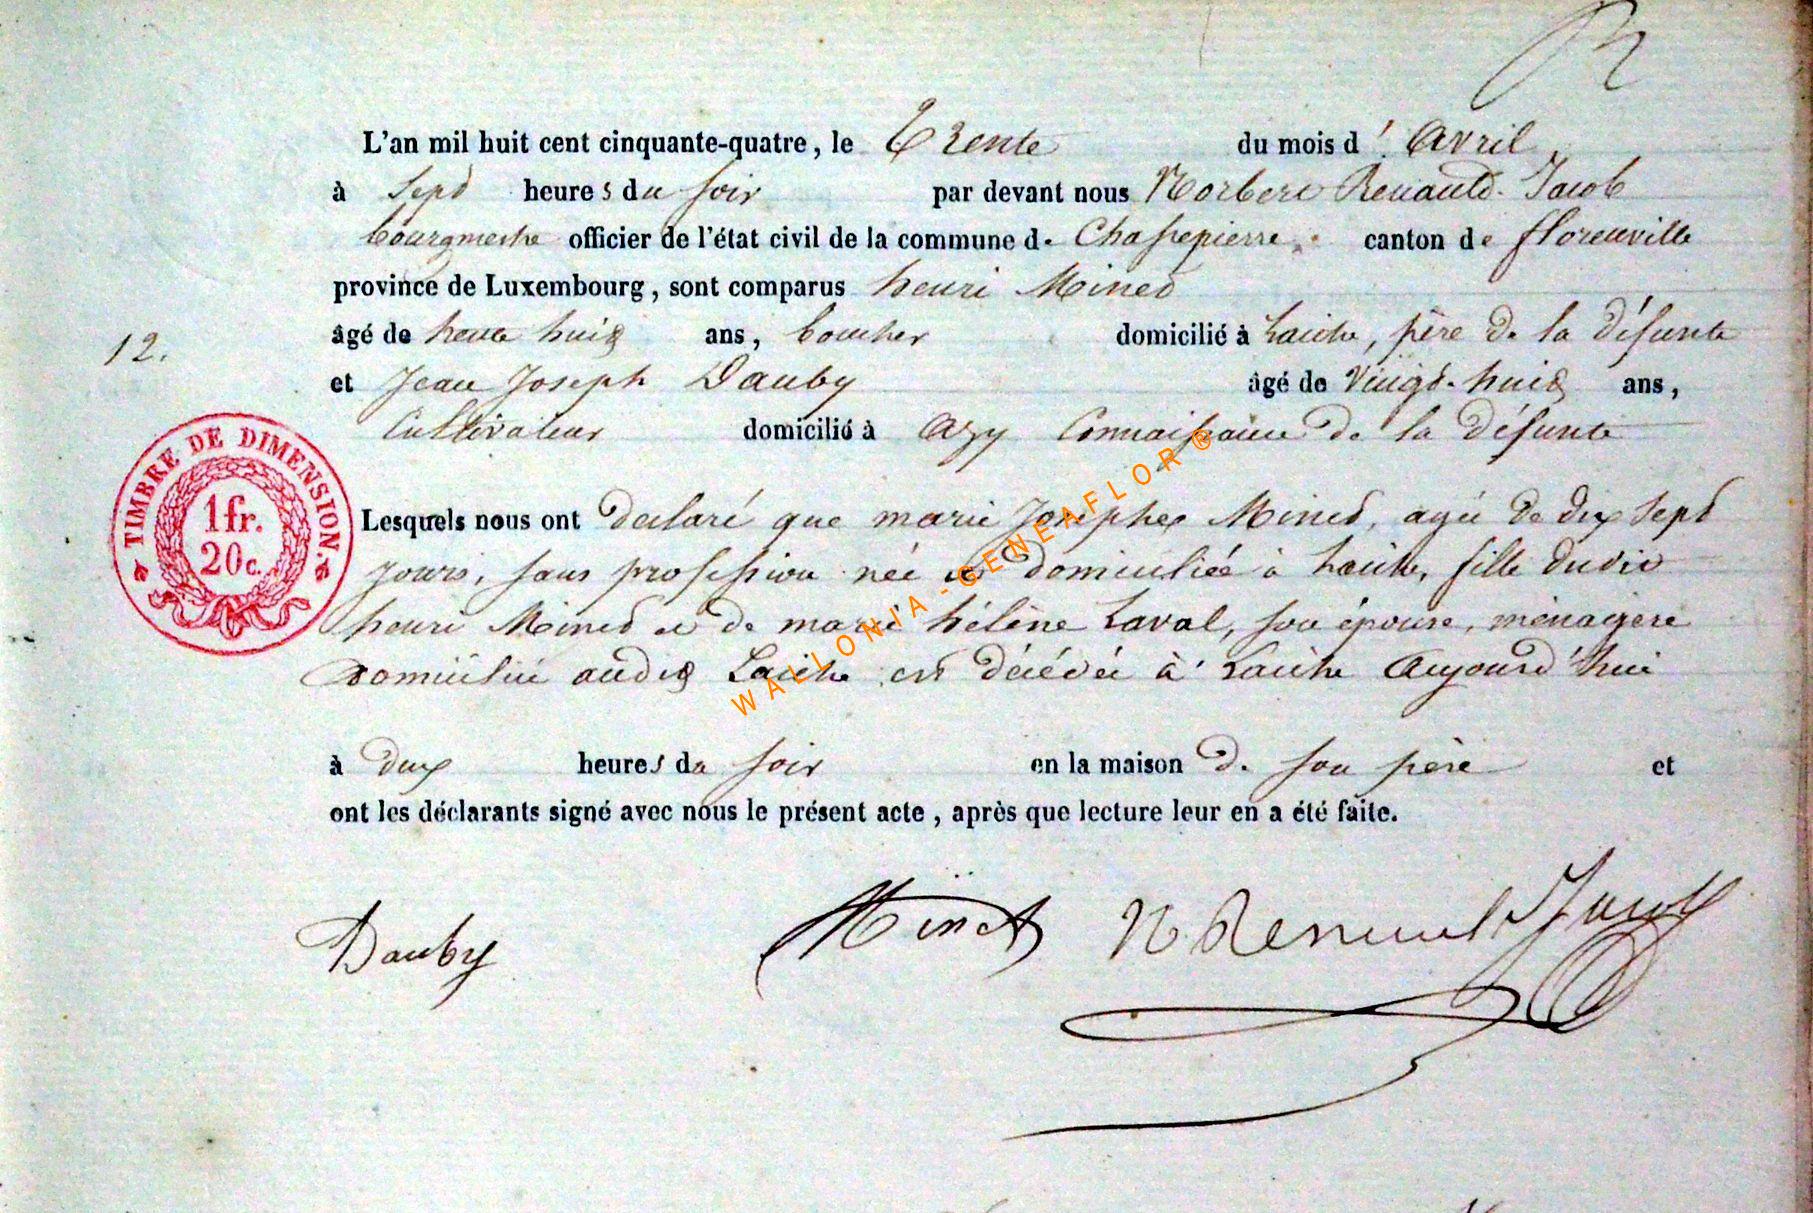 L'an mil huit cent cinquante-quatre, le Trente du mois d' avril
à Sept heures du soir par devant nous Norbert Renauld-Jacob
bourgmestre officier de l'état civil de la commune de Chassepierre canton de florenville
province de Luxembourg, sont comparus henri Minet
âgé de trente huit ans, boucher domicilié à Laiche, père de la défunte
et Jean Joseph Dauby âgé de Vingt-huit ans,
Cultivateur domicilié à Azy Connaissance de la défunte
12.
TIMBRE DE DIMENSION.
1fr.
20c.
Lesquels nous ont déclaré que marie Josephe Minet, agée de dix sept
jours, sans profession née et domiciliée à Laiche, fille dudit
henri Minet et de marie hélène Laval, son épouse, ménagère
domiciliée audit Laiche est décédée à Laiche Aujourd'hui
à deux heures du soir en la maison de son père et
ont les déclarants signé avec nous le présent acte, après que lecture leur en a été faite.
Dauby Minet N. Renauld Jacob
WALLONIA - GENEAFLOR®